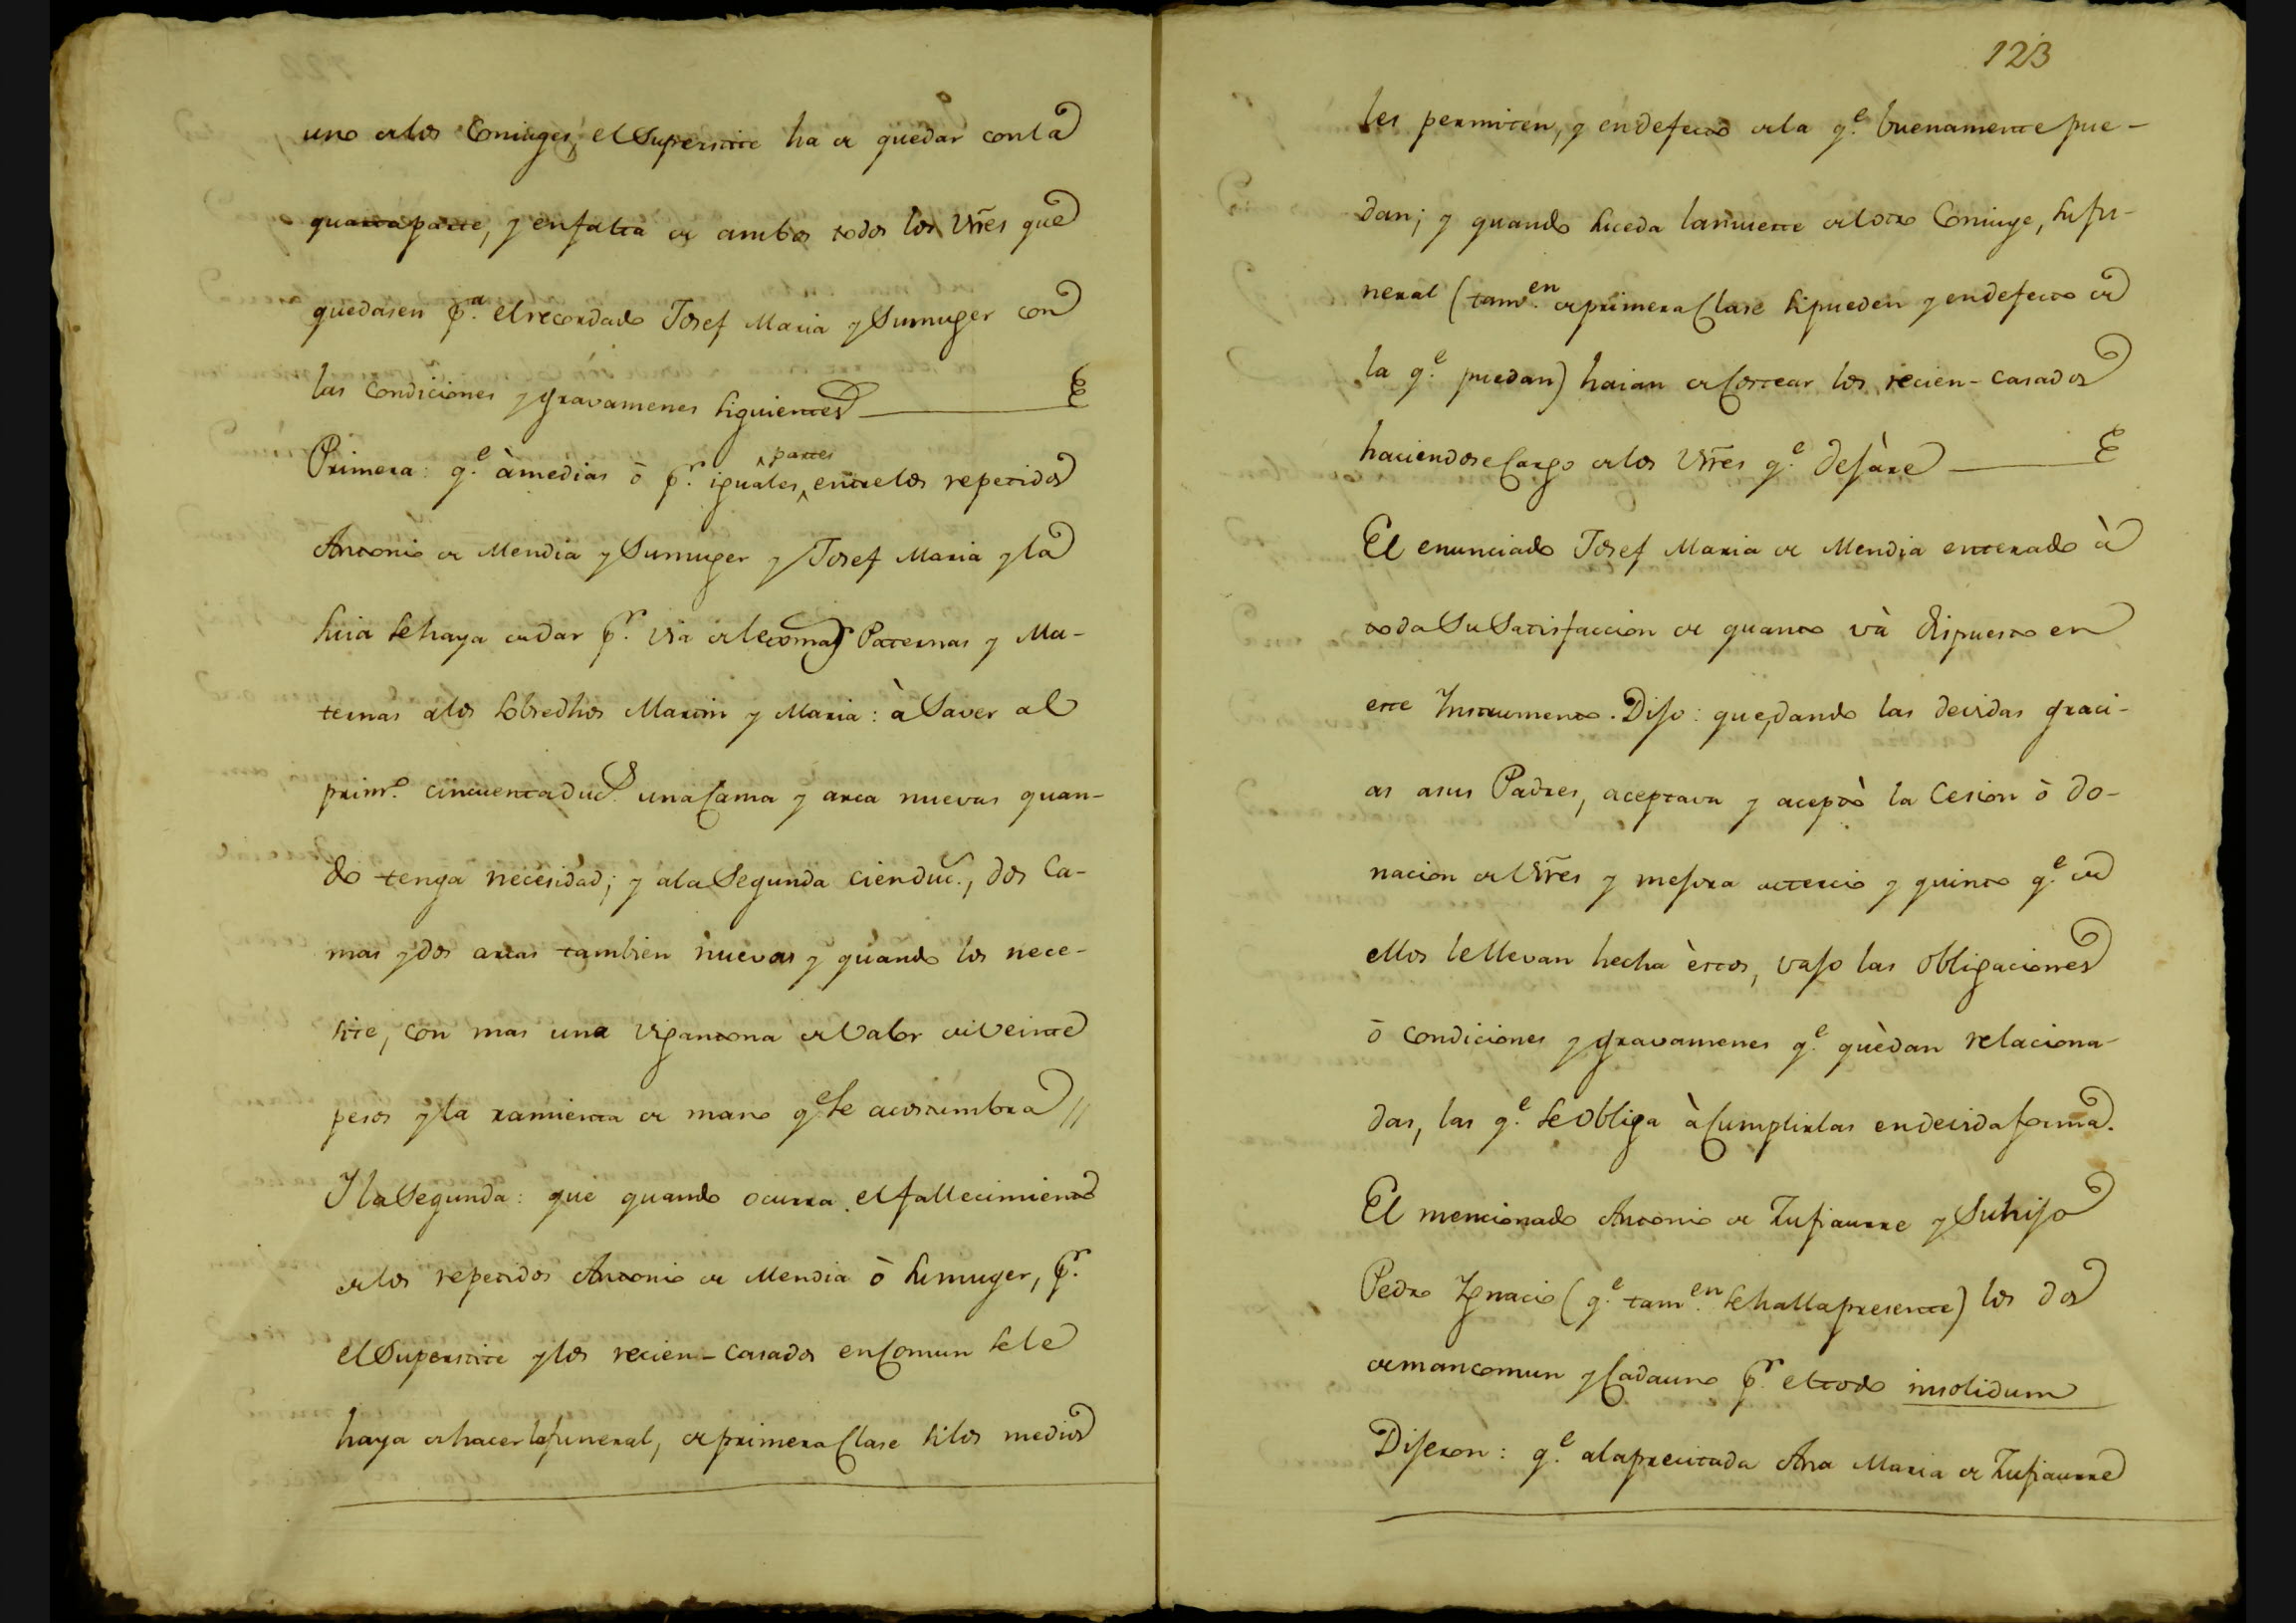 uno de los Coniuges, el Superstite ha de quedar con la
quarta parte, y en falta de ambos todos los Vŕes que
quedasen p.ª el recordado Josef Maria y Su muger con
las condiciones y gravamenes siguientes
Primera: q.e à medias ó p.r iguales partes entre los repetidos
Antonio de Mendia y Su muger y Josef Maria y la
suia se haya de dar p.r via de lexitimas Paternas y Ma-
ternas a los sobredhos Martin y Maria: à Saver al
prim.o cincuenta duc.s una Cama y arca nuevas quan-
do tenga necesidad; y a la Segunda cien duc.s, dos Ca-
mas y dos arcas tambien nuevas y quando los nece-
site, con mas una vigantona de Valor de Veinte
pesos y la ramienta de mano q.e se acostumbra //
Y la Segunda: que quando ocurra el fallecimiento
de los repetidos Antonio de Mendia ò su muger, p.r
el Superstite y los recien-casados en Comun se le
haya de hacer la funeral, de primera Clase si los medios
123
les permiten, y en defecto de la q.e buenamente pue-
dan; y quando suceda la muerte del otro Coniuge, su fu-
neral (tamv.en de primera Clase si pueden y en defecto de
la q.e puedan) haian de Costear los recien-casados
haciendose Cargo de los Vŕes q.e dejàre
El enunciado Josef Maria de Mendia enterado à
toda Su Satisfaccion de quanto và dispuesto en
este Instrumento. Dijo: que, dando las devidas graci-
as a sus Padres, aceptava y aceptò la Cesion ò do-
nacion de Vŕes y mejora de tercio y quinto q.e de
ellos le llevan hecha èstos, vajo las obligaciones
ò condiciones y gravamenes q.e quèdan relaciona-
das, las q.e se Obliga à Cumplirlas en devida forma.
El mencionado Antonio de Zufiaurre y Su hijo
Pedro Ygnacio (q.e tam.en se halla presente) los dos
de mancomun y Cada uno p.r el todo insolidum
Dijeron: q.e a la precitada Ana Maria de Zufiaurre